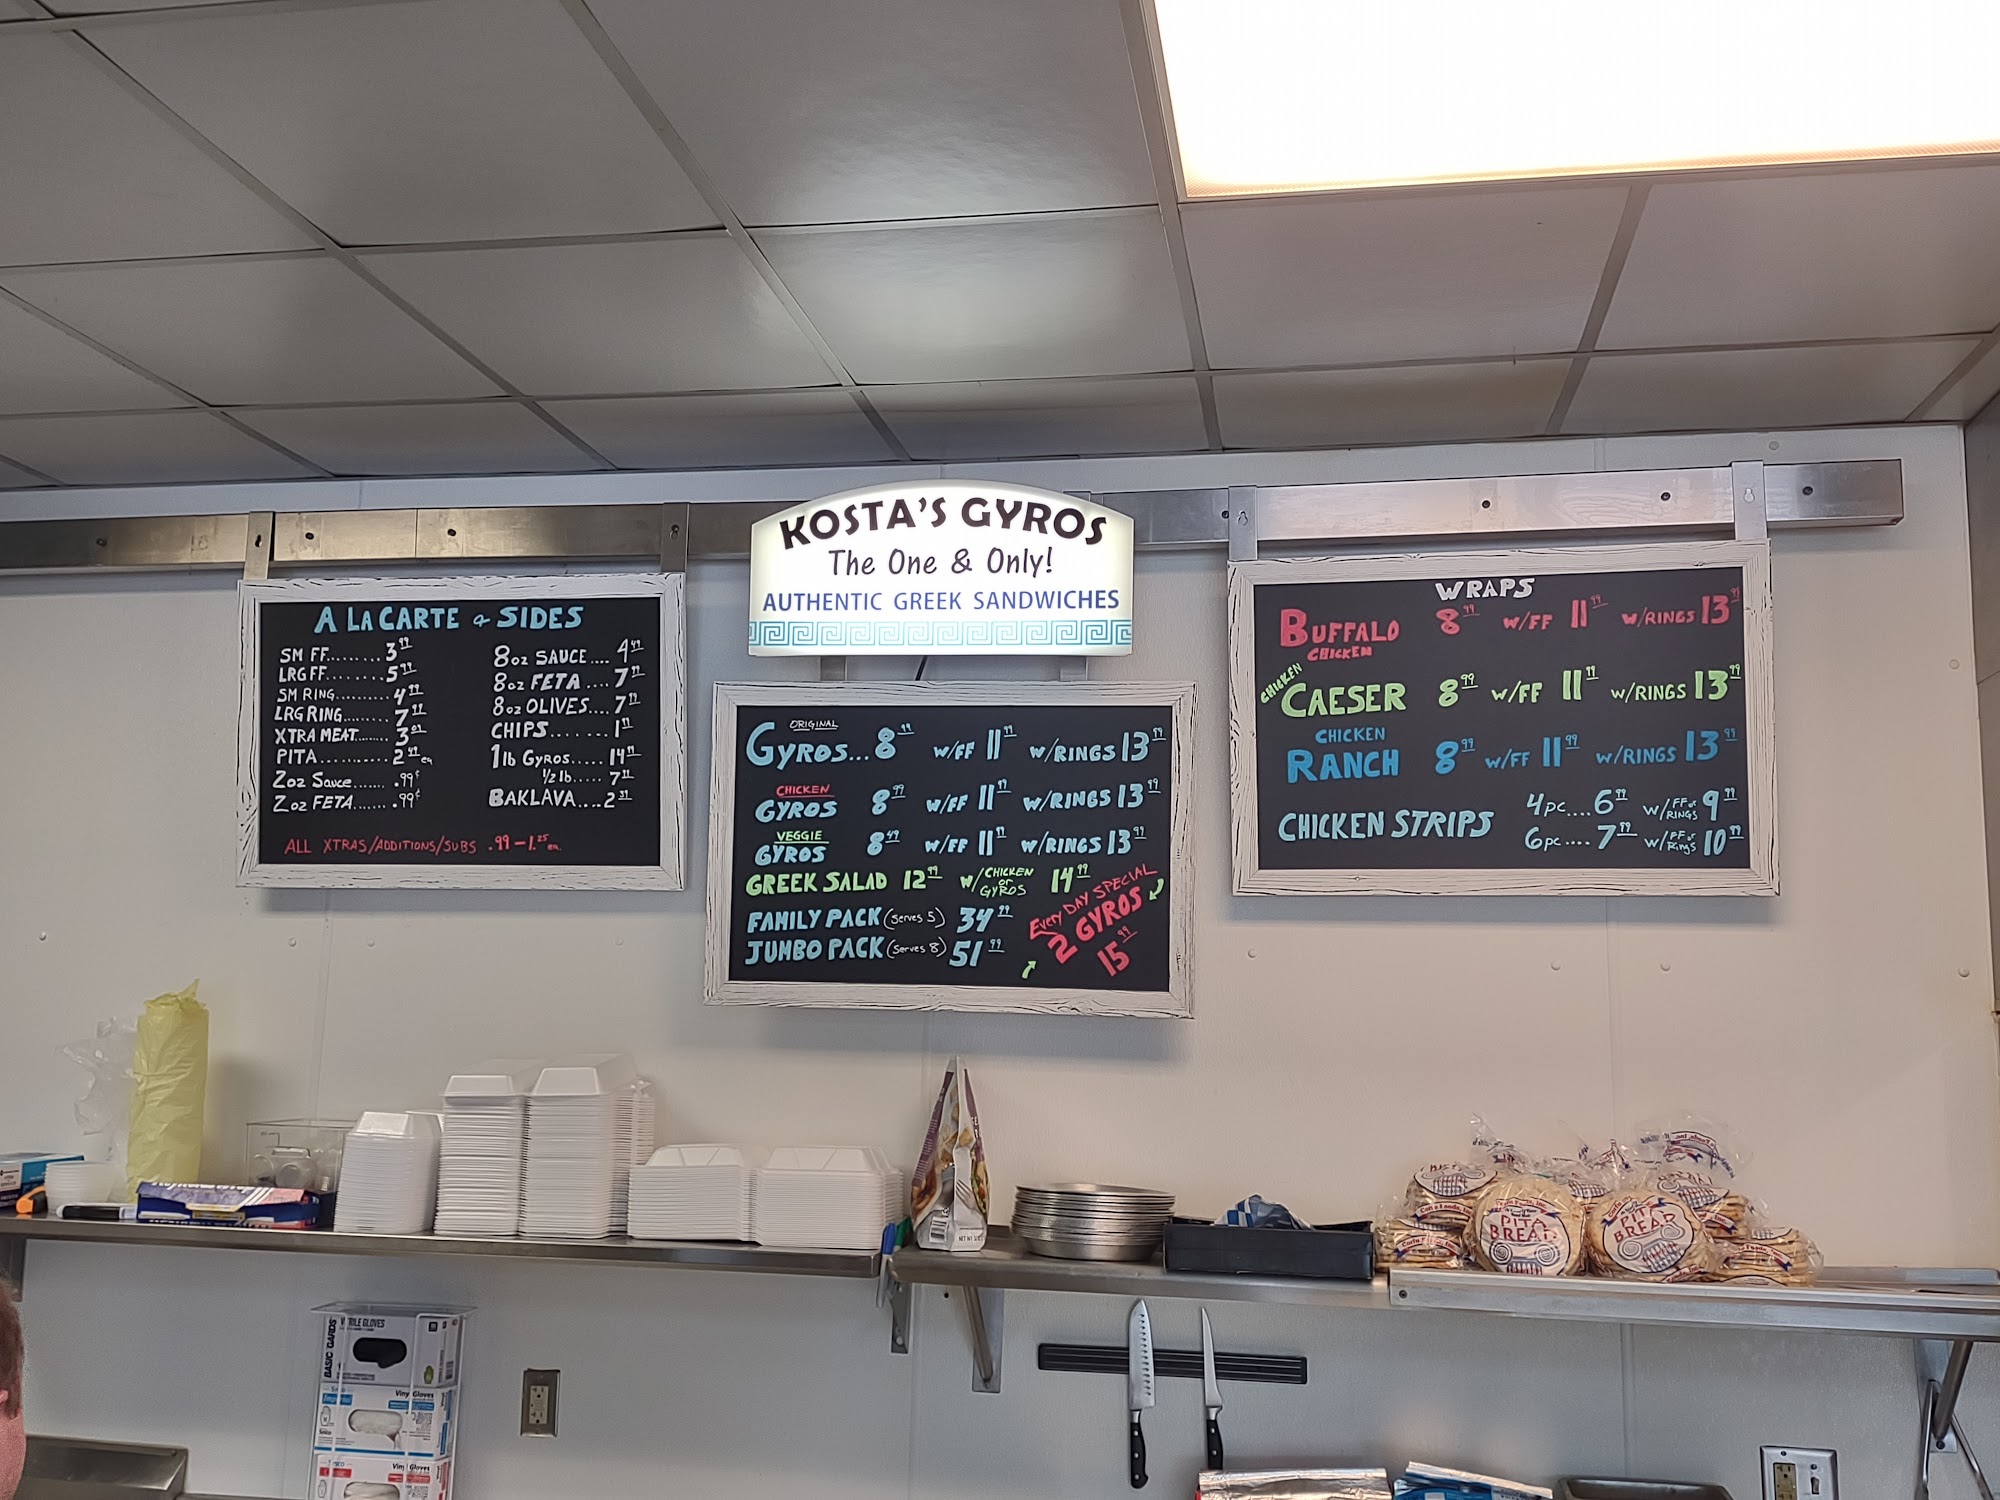 KOSTA'S GYROS
The One & Only!
AUTHENTIC GREEK SANDWICHES
A LA CARTE & SIDES
SM FF......... 3.99
LRG FF......... 5.99
SM RING.......... 4.99
LRG RING......... 7.99
XTRA MEAT........ 3.09
PITA............ 2.49 ea
2oz Sauce....... .99¢
2oz FETA....... .99¢
8oz SAUCE.... 4.49
8oz FETA .... 7.99
8oz OLIVES.... 7.99
CHIPS....... 1.99
1lb GYROS..... 14.99
1/2 lb..... 7.99
BAKLAVA.... 2.99
ALL XTRAS/ADDITIONS/SUBS .99 - 1.25 ea.
ORIGINAL
GYROS... 8.99 W/FF 11.99 W/RINGS 13.99
CHICKEN
GYROS 8.99 W/FF 11.99 W/RINGS 13.99
VEGGIE
GYROS 8.49 W/FF 11.99 W/RINGS 13.99
GREEK SALAD 12.99 W/ CHICKEN or GYROS 14.99
FAMILY PACK (serves 5) 34.99
JUMBO PACK (serves 8) 51.99
Every DAY SPECIAL
2 GYROS
15.99
WRAPS
BUFFALO 8.99 W/FF 11.99 W/RINGS 13.99
CHICKEN
CHICKEN
CAESER 8.99 W/FF 11.99 W/RINGS 13.99
CHICKEN
RANCH 8.99 W/FF 11.99 W/RINGS 13.99
CHICKEN STRIPS 4pc.... 6.99 W/ FF or RINGS 9.99
6pc.... 7.99 W/ FF or Rings 10.99
PITA
BREAD
PITA
BREAD
BASIC GARDS
NITRILE GLOVES
Sysco
Vinyl Gloves
Sysco
Vinyl Gloves